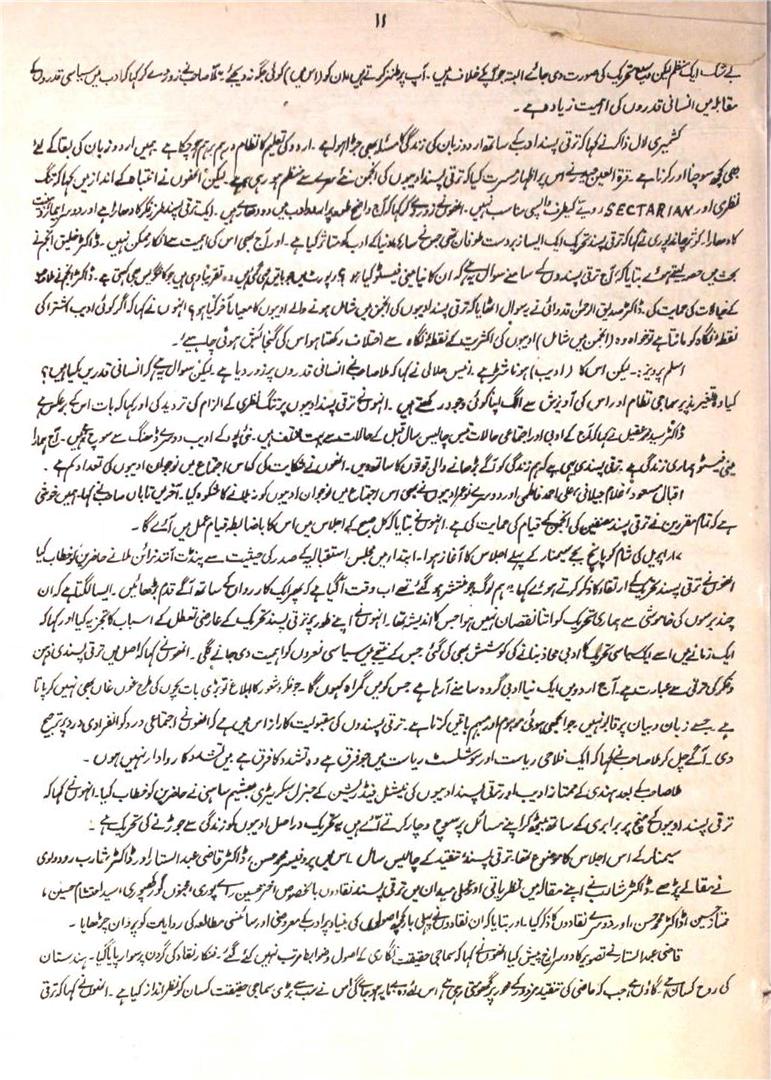 ۱۱
بے شک ایک منظم لیکن وسیع تحریک کی صورت دی جائے البتہ جو آپ کے خلاف ہیں۔ آپ پر طنز کرتے ہیں ان کو (اس میں) کوئی جگہ نہ دیجئے۔ ملا صاحب نے زور دے کر کہا کہ ادب میں سیاسی قدروں کے
مقابلہ میں انسانی قدروں کی اہمیت زیادہ ہے۔
کشمیری لال ذاکر نے کہا کہ ترقی پسند ادب کے ساتھ اردو زبان کی زندگی کا مسئلہ بھی جڑا ہوا ہے۔ اردو کی تعلیم کا نظام درہم برہم ہو چکا ہے ہمیں اردو زبان کی بقا کے لئے
بھی کچھ سوچنا اور کرنا ہے۔ قرۃ العین حیدر نے اس پر اظہار مسرت کیا کہ ترقی پسند ادیبوں کی انجمن نئے سرے سے منظم ہو رہی ہے۔ لیکن انھوں نے انتباہ کے انداز میں کہا کہ تنگ
نظری اور SECTARIAN رویے کی طرف واپسی مناسب نہیں۔ انھوں نے زور دے کر کہا کہ آج واضح طور پر اردو ادب میں دو دھارے ہیں۔ ایک ترقی پسند طرز فکر کا دھارا ہے اور دوسرا
کا دھارا۔ کوثر چاند پوری نے کہا کہ ترقی پسند تحریک ایک ایسا زبردست طوفان تھی جس نے ساری دنیا کے ادب کو متاثر کیا ہے۔ اور آج بھی اس کی اہمیت سے انکار ممکن نہیں۔ ڈاکٹر خلیق انجم نے
بحث میں حصہ لیتے ہوئے بتایا کہ آج ترقی پسندوں کے سامنے سوال یہ ہے کہ ان کا نیا مینی فیسٹو کیا ہو؟ رپورٹ میں جو باتیں کہی گئی ہیں وہ تقریباً وہی ہیں جو کانگریس بھی کہتی ہے۔ ڈاکٹر انجم نے ملا صاحب
کے خیالات کی حمایت کی۔ ڈاکٹر صدیق الرحمٰن قدوائی نے یہ سوال اٹھایا کہ ترقی پسند ادیبوں کی انجمن میں شامل ہونے والے ادیبوں کا معیار آخر کیا ہو؟ انہوں نے کہا کہ اگر کوئی ادیب اشتراکی
نقطۂ نگاہ کو مانتا ہے تو خواہ وہ (انجمن میں شامل) ادیبوں کی اکثریت کے نقطۂ نگاہ سے اختلاف رکھتا ہو اس کی گنجائش ہونی چاہیے۔
اسلم پرویز:۔ لیکن اس کا (ادیب) ہونا شرط ہے۔ انیس جلالی نے کہا کہ ملا صاحب نے انسانی قدروں پر زور دیا ہے لیکن سوال یہ ہے کہ انسانی قدریں کیا ہیں؟
کیا وہ تغیر پذیر سماجی نظام اور اس کی آویزش سے الگ اپنا کوئی وجود رکھتے ہیں۔ انہوں نے ترقی پسند ادیبوں پر تنگ نظری کے الزام کی تردید کی اور کہا کہ بات اس کے برعکس ہے
ڈاکٹر سید محمد عقیل نے کہا کہ آج کے ادبی اور اجتماعی حالات تیس چالیس سال قبل کے حالات سے بہت مختلف ہیں۔ نئی پود کے ادیب دوسرے ڈھنگ سے سوچ رہے ہیں۔ آج ہمارا
مینی فیسٹو ہماری زندگی ہے ترقی پسندی یہی ہے کہ ہم زندگی کو آگے بڑھانے والی قوتوں کا ساتھ دیں۔ انھوں نے شکایت کی کہ اس اجتماع میں نوجوان ادیبوں کی تعداد کم ہے۔
اقبال مسعود، غلام جیلانی، علی احمد فاطمی اور دوسرے نوعمر ادیبوں نے بھی اس اجتماع میں نوجوان ادیبوں کو نہ بلانے کا شکوہ کیا۔ آخر میں تاباں صاحب نے کہا۔ ہمیں خوشی
ہے کہ تمام مقررین نے ترقی پسند مصنفین کی انجمن کے قیام کی حمایت کی ہے۔ انہوں نے بتایا کہ کل صبح کے اجلاس میں اس کا باضابطہ قیام عمل میں آئے گا۔
۱۷ اپریل کی شام کو پانچ بجے سیمینار کے پہلے اجلاس کا آغاز ہوا۔ ابتدا میں مجلس استقبالیہ کے صدر کی حیثیت سے پنڈت آنند نرائن ملا نے حاضرین کو خطاب کیا
انھوں نے ترقی پسند تحریک کے ارتقا کا ذکر کرتے ہوئے کہا "ہم لوگ جو منتشر ہو گئے تھے اب وقت آ گیا ہے کہ پھر ایک کارواں کے ساتھ آگے قدم بڑھائیں۔ ایسا لگتا ہے کہ ان
چند برسوں کی خاموشی سے ہماری تحریک کو اتنا نقصان نہیں ہوا جس کا اندیشہ تھا۔ انہوں نے اپنے طور پر ترقی پسند تحریک کے عارضی تعطل کے اسباب کا تجزیہ کیا اور کہا کہ
ایک زمانے میں اسے ایک سیاسی تحریک کا ادبی محاذ بنانے کی کوشش بھی کی گئی جس کے نتیجے میں سیاسی نعروں کو اہمیت دی جانے لگی۔ انھوں نے کہا کہ اصل میں ترقی پسندی ذہن
و فکر کی ترقی سے عبارت ہے۔ آج اردو میں ایک نیا ادبی گروہ سامنے آ رہا ہے جس کو میں گمراہ کہوں گا۔ جو فکر و شعور کا ابلاغ تو بڑی بات بچوں کی طرح غوں غاں بھی نہیں کر پاتا
ہے جسے زبان و بیان پر قابو نہیں، جو الجھی ہوئی موہوم اور مبہم باتیں کرتا ہے۔ ترقی پسندوں کی مقبولیت کا راز اس میں ہے کہ انھوں نے اجتماعی درد کو انفرادی درد پر ترجیح
دی۔ آگے چل کر ملا صاحب نے کہا کہ ایک فلاحی ریاست اور سوشلسٹ ریاست میں جو فرق ہے وہ تشدد کا فرق ہے میں تشدد کا روادار نہیں ہوں۔
ملا صاحب کے بعد ہندی کے ممتاز ادیب اور ترقی پسند ادیبوں کی نیشنل فیڈریشن کے جنرل سکریٹری بھیشم ساہنی نے حاضرین کو خطاب کیا۔ انہوں نے کہا کہ
ترقی پسند ادیبوں کے منچ پر برابری کے ساتھ بیٹھ کر اپنے مسائل پر سوچ وچار کرتے آئے ہیں یہ تحریک دراصل ادیبوں کو زندگی سے جوڑنے کی تحریک ہے۔
سیمینار کے اس اجلاس کا موضوع تھا، ترقی پسند تنقید کے چالیس سال۔ اس میں پروفیسر محمد حسن، ڈاکٹر قاضی عبد الستار اور ڈاکٹر شارب ردولوی
نے مقالے پڑھے۔ ڈاکٹر شارب نے اپنے مقالہ میں نظریاتی اور عملی میدان میں ترقی پسند نقادوں بالخصوص اختر حسین رائے پوری، مجنوں گورکھپوری، سید احتشام حسین،
ممتاز حسین، ڈاکٹر محمد حسن، اور دوسرے نقادوں کا ذکر کیا۔ اور بتایا کہ ان نقادوں نے پہلی بار کچھ اصولوں کی بنیاد پر ادب کے معروضی اور سائنسی مطالعہ کی روایات کو پروان چڑھایا۔
قاضی عبد الستار نے تصویر کا دوسرا رخ پیش کیا انھوں نے کہا کہ سماجی حقیقت نگاری کے اصول و ضوابط مرتب نہیں کئے گئے۔ فنکار نقاد کی گردن پر سوار پایا گیا۔ ہندوستان
کی روح کسان ہے۔ گاؤں ہے، جب کہ ماضی کی تنقید مزدور کے محور پر گھومتی رہی ہے اس لئے وہ بے جا ہو جائے گی اس نے سب سے بڑی سماجی حقیقت کسان کو نظر انداز کیا ہے۔ انھوں نے کہا کہ ترقی